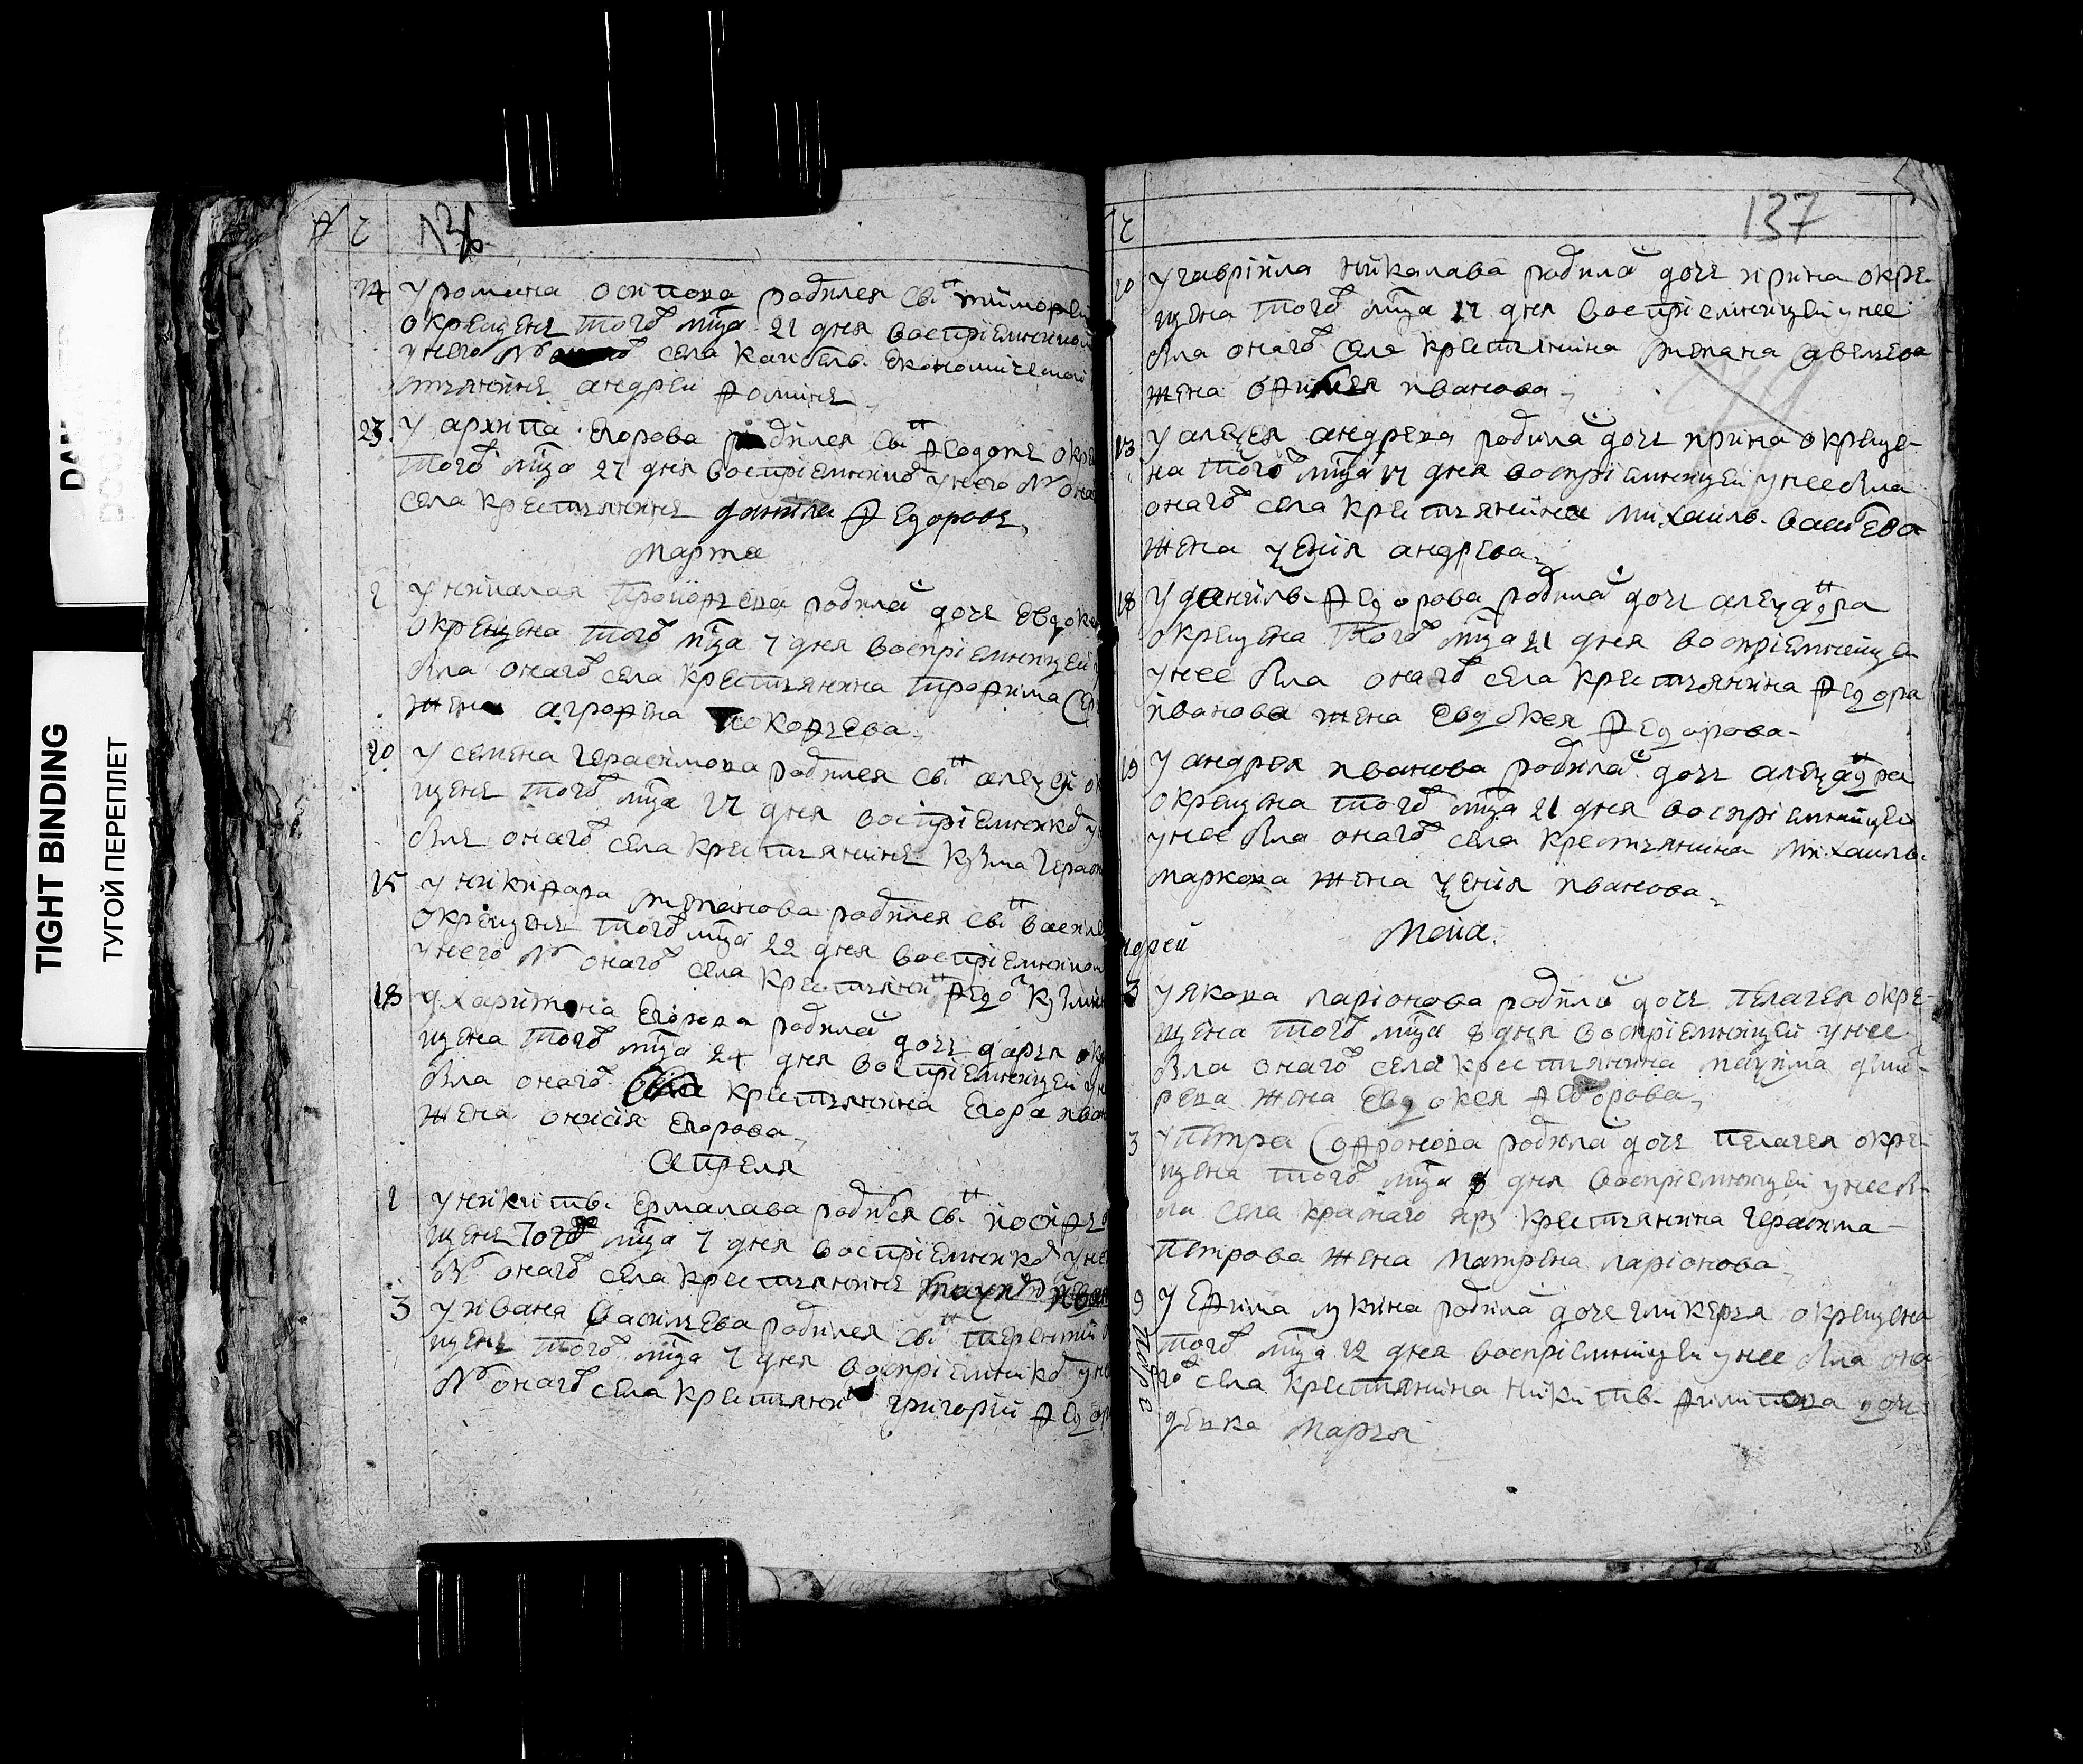 TIGHT BINDING
ТУГОЙ ПЕРЕПЛЕТ
136
14 у романа осипова родился сынъ тимофей
окрещенъ того мца 21 дня восприемником
у него былъ села экономической
андрей фоминъ
23 у архипа егорова родился сынъ федотъ
того мца 27 дня восприемникъ у него былъ
села крестьянинъ данила федоровъ
марта
2 у николая прокофьева родилась дочь
окрещена того мца 7 дня восприемницей
была онаго села крестьянина трофима
жена аграфена прокофьева
10 у семена герасимова родился сынъ алексей
щенъ того мца 17 дня восприемникъ
былъ онаго села крестьянинъ кузма
15 у никифара степанова родился сынъ
окрещенъ того мца 22 дня
у него былъ онаго села крестьянинъ федоръ
18 у харитона егорова родилась дочь дарья
щена того мца 24 дня восприемницей
была онаго села крестьянина егора
жена онисия егорова
апреля
1 у никиты ермалава родился сынъ иосифъ
щенъ того мца 7 дня восприемникъ
былъ онаго села крестьянинъ
3 у ивана васильева родился сынъ терентий
щенъ того мца 7 дня восприемникъ
былъ онаго села крестьянинъ григорий
137
10 у гаврийла николава родилась дочь ирина окре
щена того мца 17 дня восприемницей у нее
была онаго села крестьянина степана савельева
жена офимея иванова
13 у алексея андреева родилась дочь ирина окреще
на того мца 17 дня восприемницей у нее была
онаго села крестьянина михаилы
жена ксения андреева
18 у данилы федорова родилась дочь александра
окрещена того мца 21 дня восприемницей
у нее была онаго села крестьянина федора
иванова жена евдокея федорова
19 у андрея иванова родилась дочь александра
окрещена того мца 21 дня восприемницей
у нее была онаго села крестьянина михаилы
маркова жена ксения иванова
маиа
3 у якова ларионова родилась дочь пелагея окре
щена того мца 8 дня восприемницей у нее
была онаго села крестьянина максима
жена евдокея федорова
3 у петра софронова родилась дочь пелагея окре
щена того мца 8 дня восприемницей у нее бы
ла села краснаго яру крестьянина герасима
петрова жена матрена ларионова
9 у ефима лукина родилась дочь гликерья окрещена
того мца 12 дня восприемницей у нее была она
го села крестьянина никиты дочь
девка марья